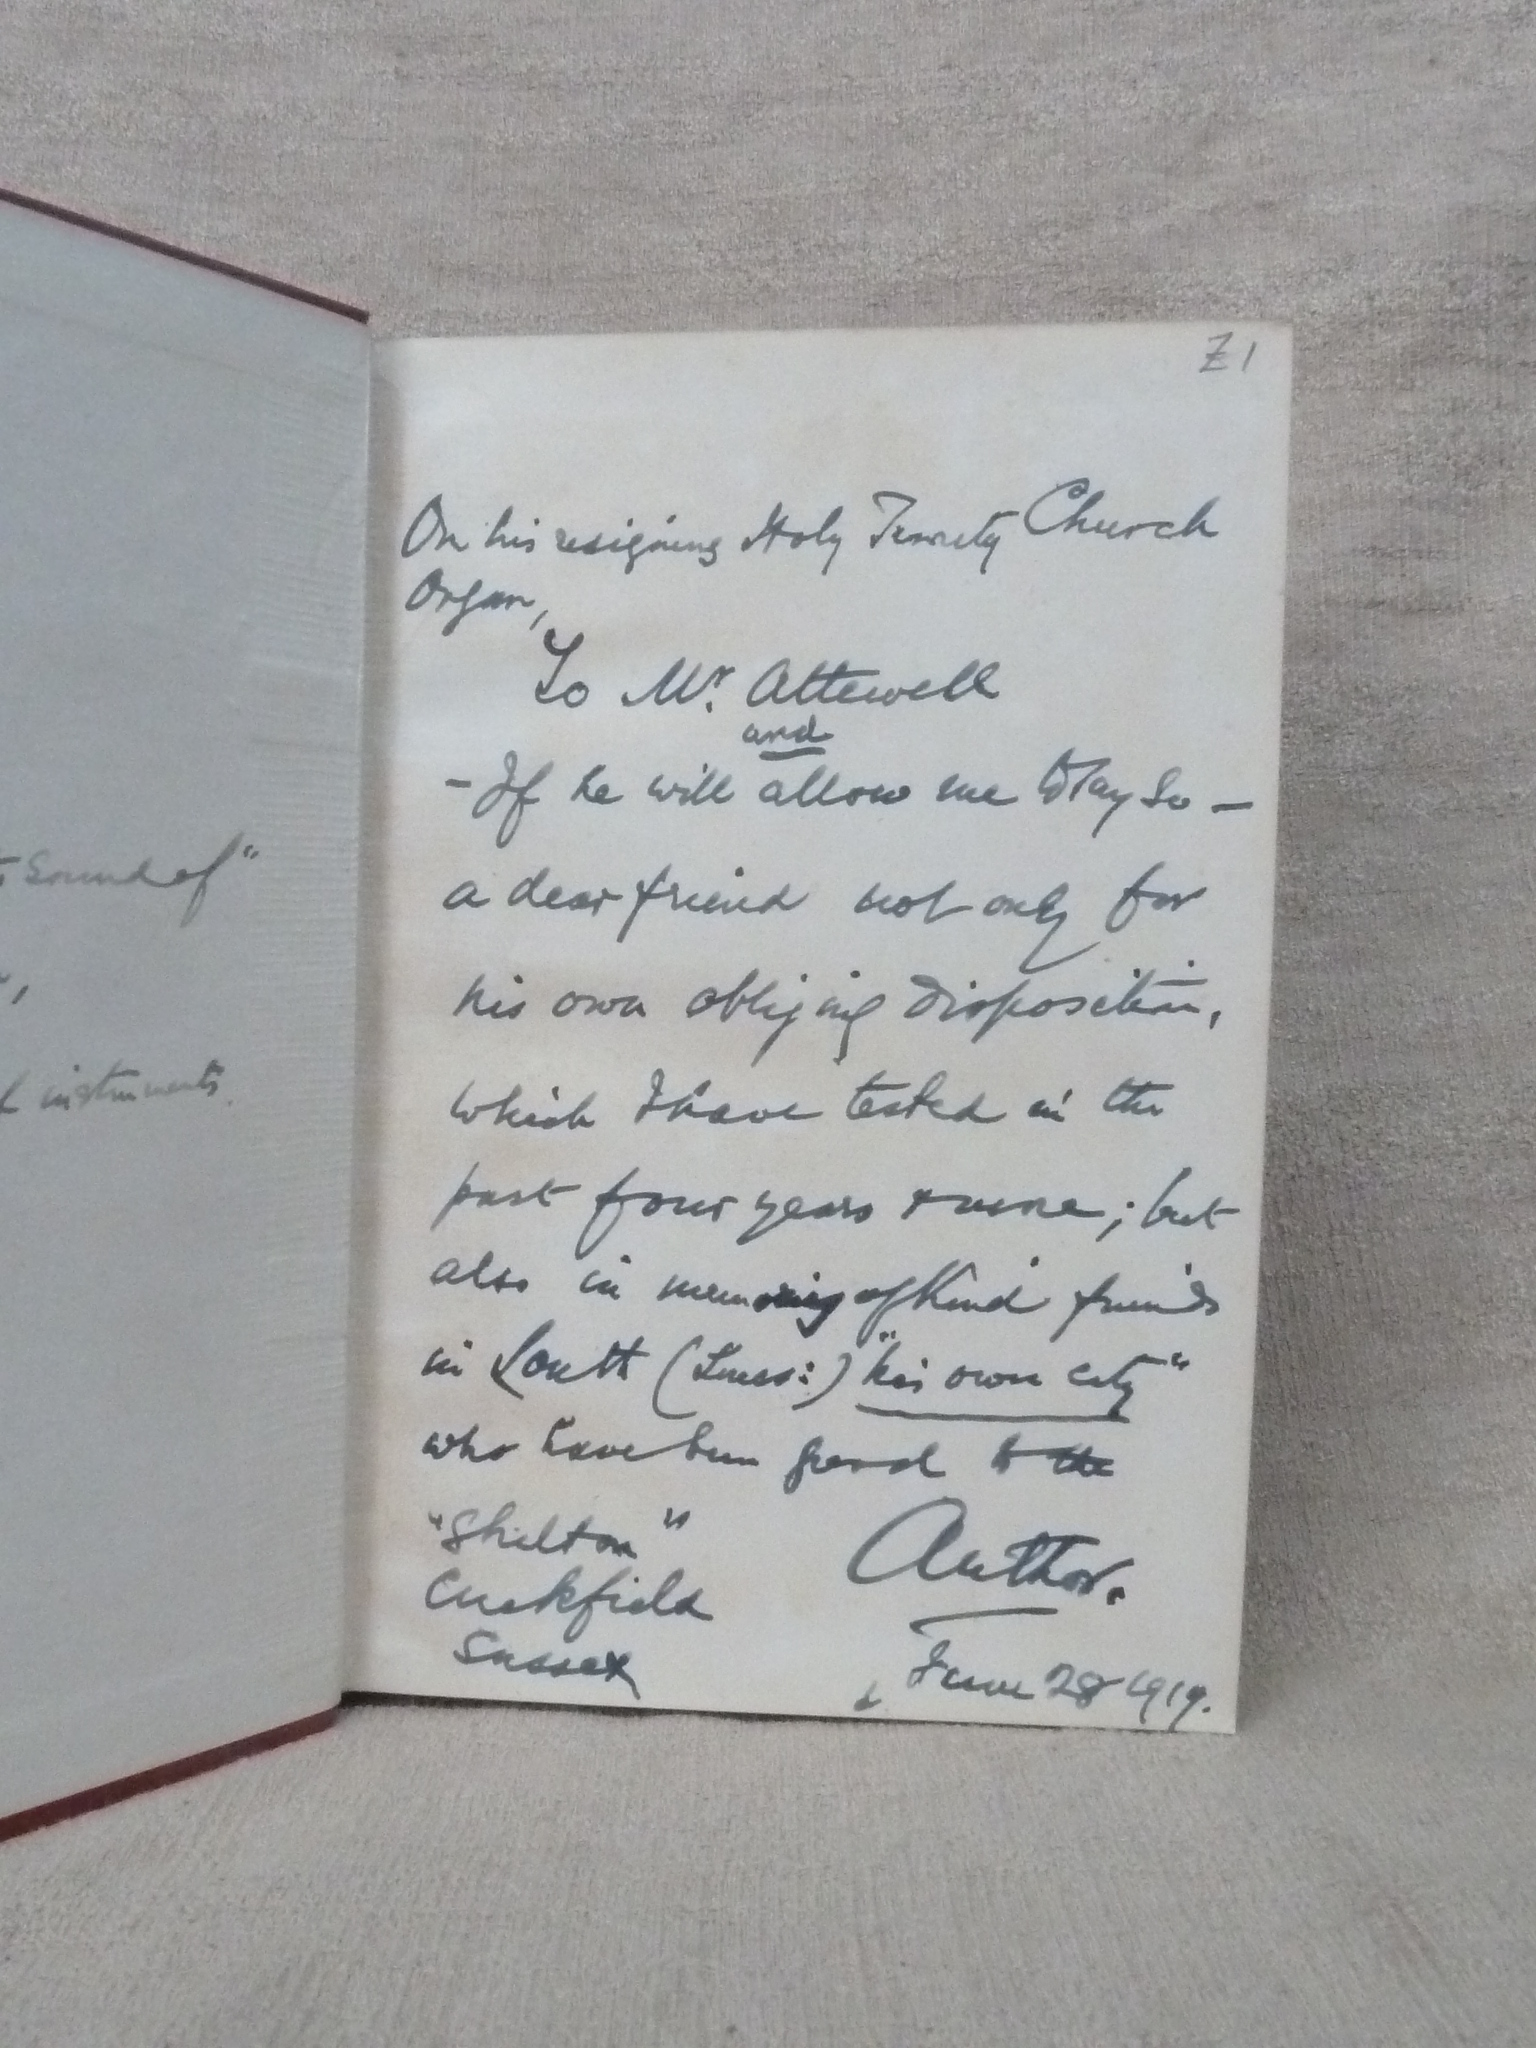 Z1
On his resigning Holy Trinity Church
Organ,
To Mr. Attewell
and
- If he will allow me to say so -
a dear friend not only for
his own obliging disposition,
which I have tested in the
past four years & more; but
also in memory of kind friends
in Louth (Lincs:) "his own city"
who have been good to the
Author.
"Shelton"
Cuckfield
Sussex
June 28 1919.
sound of"
instruments.